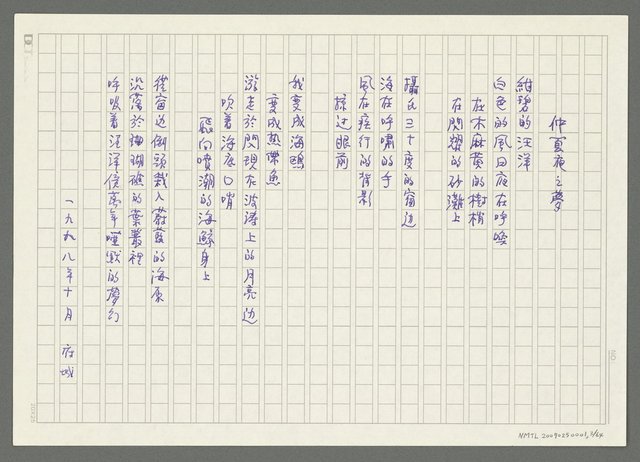 仲夏夜之夢
紺碧的汪洋
白色的風日夜在呼喚
在木麻黃的樹梢
在閃耀的砂灘上
攝氏三十度的窗邊
海在呼嘯的手
風在疾行的背影
掠過眼前
我變成海鷗
變成熱帶魚
游走於閃現在波濤上的月亮邊
吹着海底口哨
飛向噴潮的海鯨身上
從窗邊倒頭栽入蔚藍的海原
沉落於珊瑚礁的葉叢裡
呼吸着汪洋億萬年喑默的夢幻
一九九八年十月 府城
NMTL 20090250001, 2/64